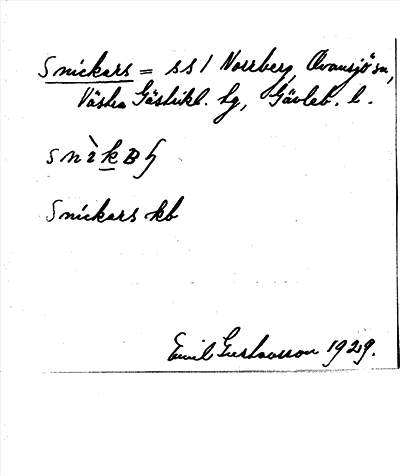 Snickars = ss 1 Norrberg, Ovansjö sn,
Västra Gästrikl. tg, Gävleb. l.
Snickars kb
Emil Gustavsson 1929.